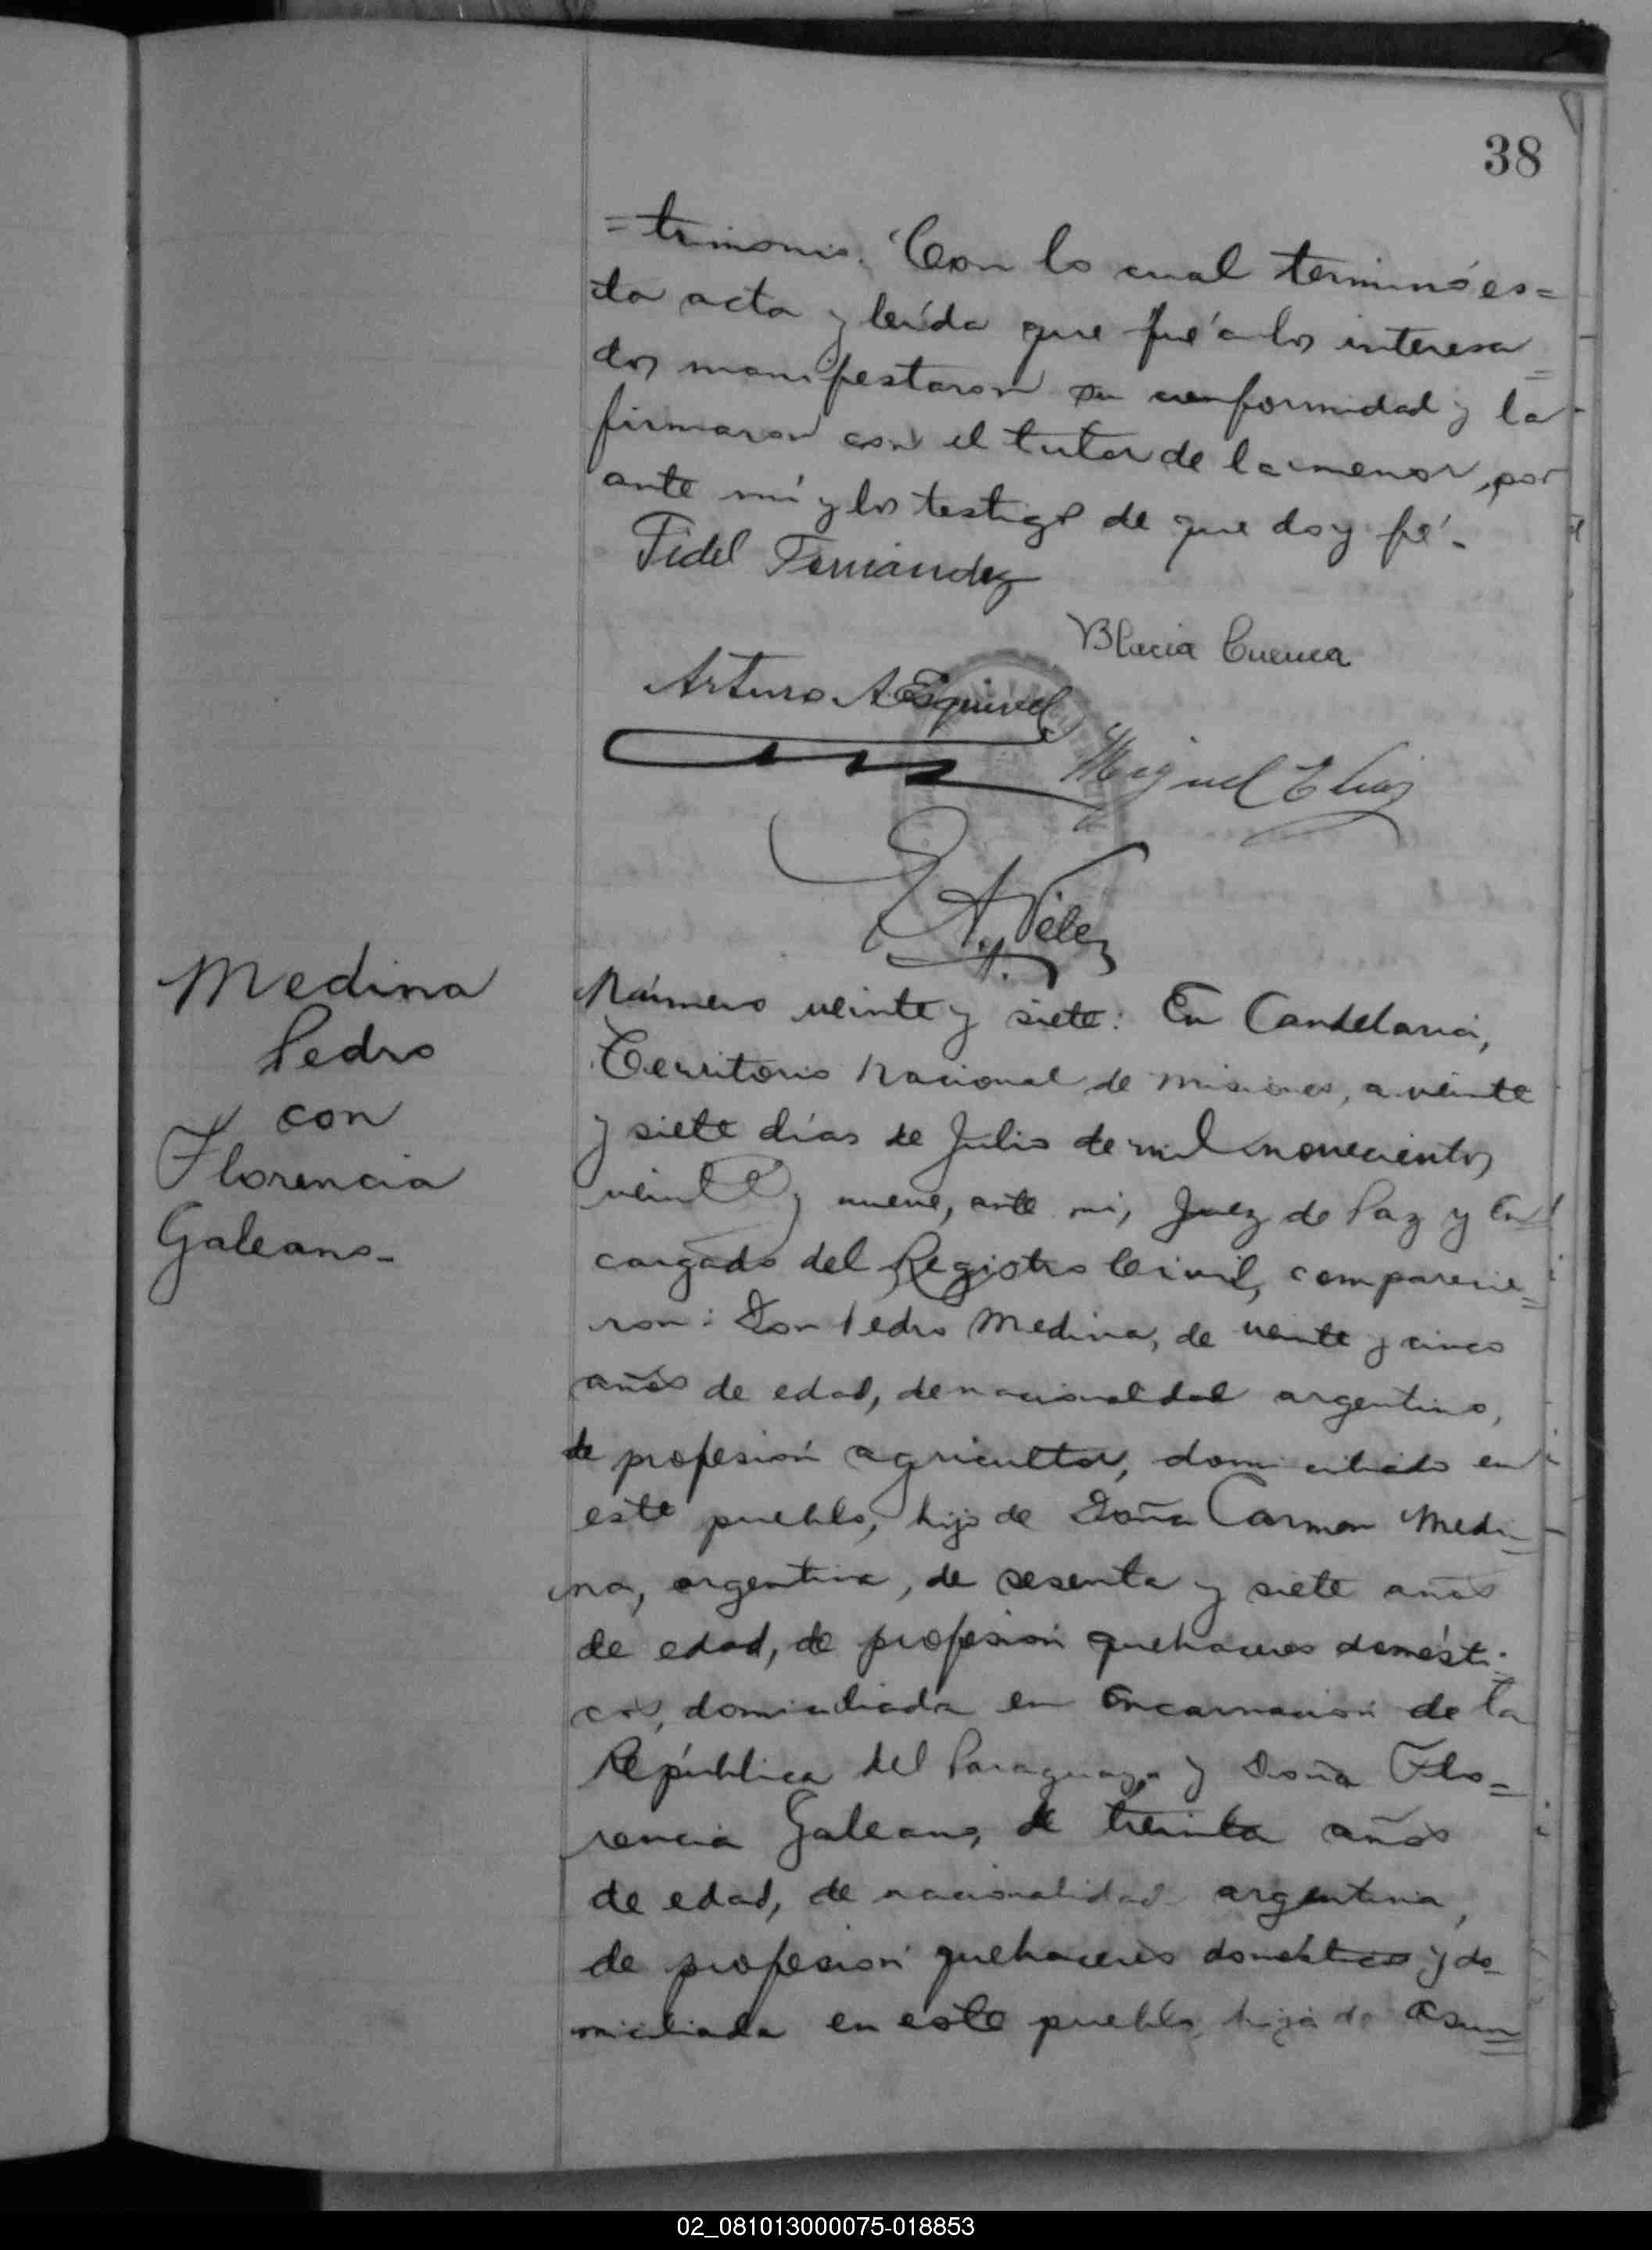 38
=trimonio. Con lo cual terminó es=
ta acta y leída que fué a los interesa=
dos manifestaron su conformidad y la
firmaron con el tutor de la menor, por
ante mí y los testigos de que doy fé.-
Fidel Fernández
Cuenca
Arturo A Esquivel
Miguel Elias
A. Velez
Número veinte y siete: En Candelaria,
Territorio Nacional de Misiones, a veinte
y siete días de Julio de mil novecientos
veinte y nueve, ante mi, Juez de Paz y En=
cargado del Registro Civil, comparecie=
ron: Don Pedro Medina, de veinte y cinco
años de edad, de nacionalidad argentino,
de profesión agricultor, domiciliado en
este pueblo, hijo de Doña Carmen Medi=
na, argentina, de sesenta y siete años
de edad, de profesión quehaceres domésti=
cos, domiciliada en Encarnación de la
República del Paraguay y Doña Flo=
rencia Galeano, de treinta años
de edad, de nacionalidad argentina,
de profesión quehaceres domésticos y do=
miciliada en este pueblo, hija de Asun=
Medina
Pedro
con
Florencia
Galeano-
02_081013000075-018853